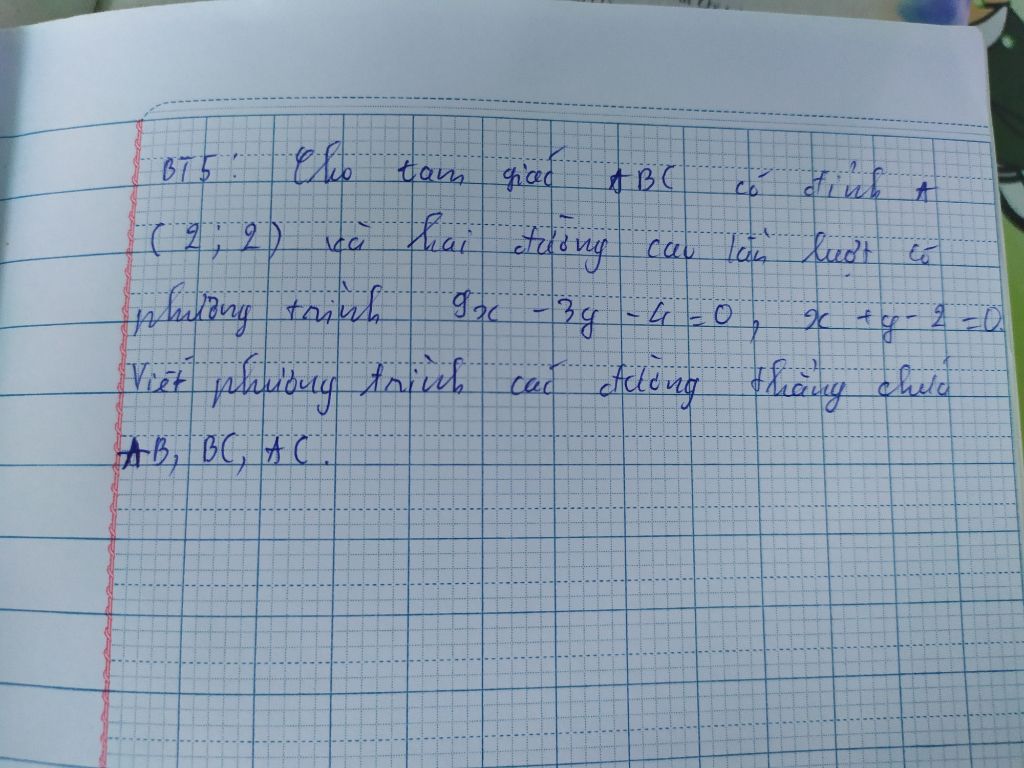 BT5: Cho tam giác ABC có đỉnh A
(2; 2) và hai đường cao lần lượt có
phương trình 9x - 3y - 4 = 0, x + y - 2 = 0.
Viết phương trình các đường thẳng chứa
AB, BC, AC.